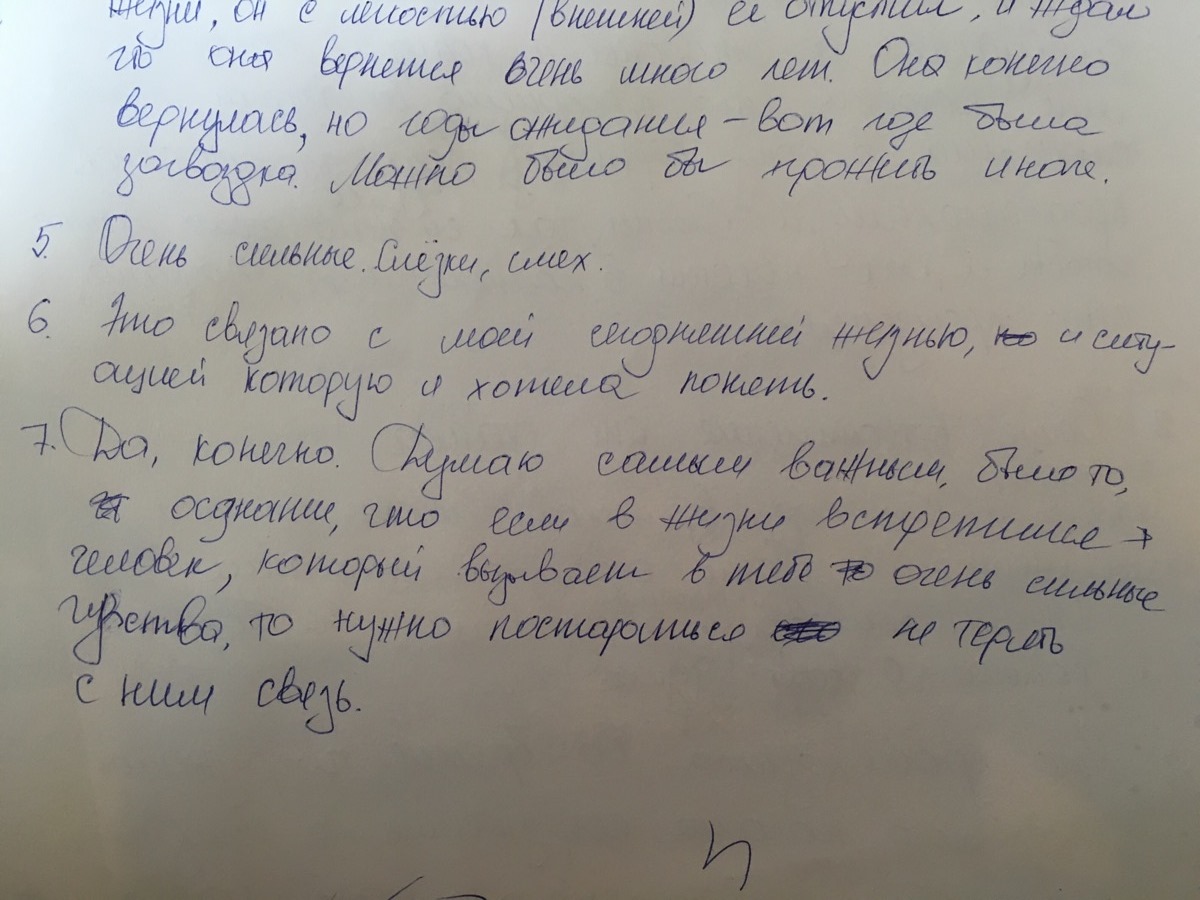 жизни, он с легкостью (внешней) её отпустил, и ждал
что она вернется очень много лет. Она конечно
вернулась, но годы ожидания – вот где была
загвоздка. Можно было бы прожить иначе.
5. Очень сильные. Слёзки, смех.
6. Это связано с моей сегодняшней жизнью, и ситу-
ацией которую я хотела понять.
7. Да, конечно. Думаю самым важным, было то,
осднание, что если в жизни встретился
человек, который вызывает в тебе очень сильные
чувства, то нужно постараться не терять
с ним связь.